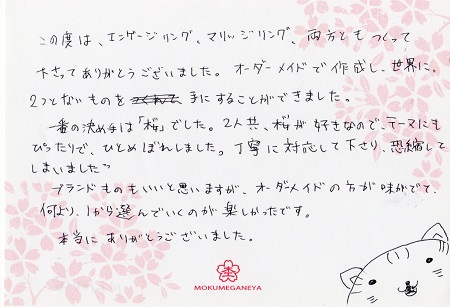 この度は、エンゲージリング、マリッジリング、両方ともつくって
下さってありがとうございました。オーダーメイドで作成し、世界に、
2つとないものを 手にすることができました。
一番の決め手は「桜」でした。2人共、桜が好きなので、テーマにも
ぴったりで、ひとめぼれしました。丁寧に対応して下さり、恐縮して
しまいました
ブランドものもいいと思いますが、オーダーメイドの方が味がでて、
何より、1から選んでいくのが楽しかったです。
本当にありがとうございました。
MOKUMEGANEYA